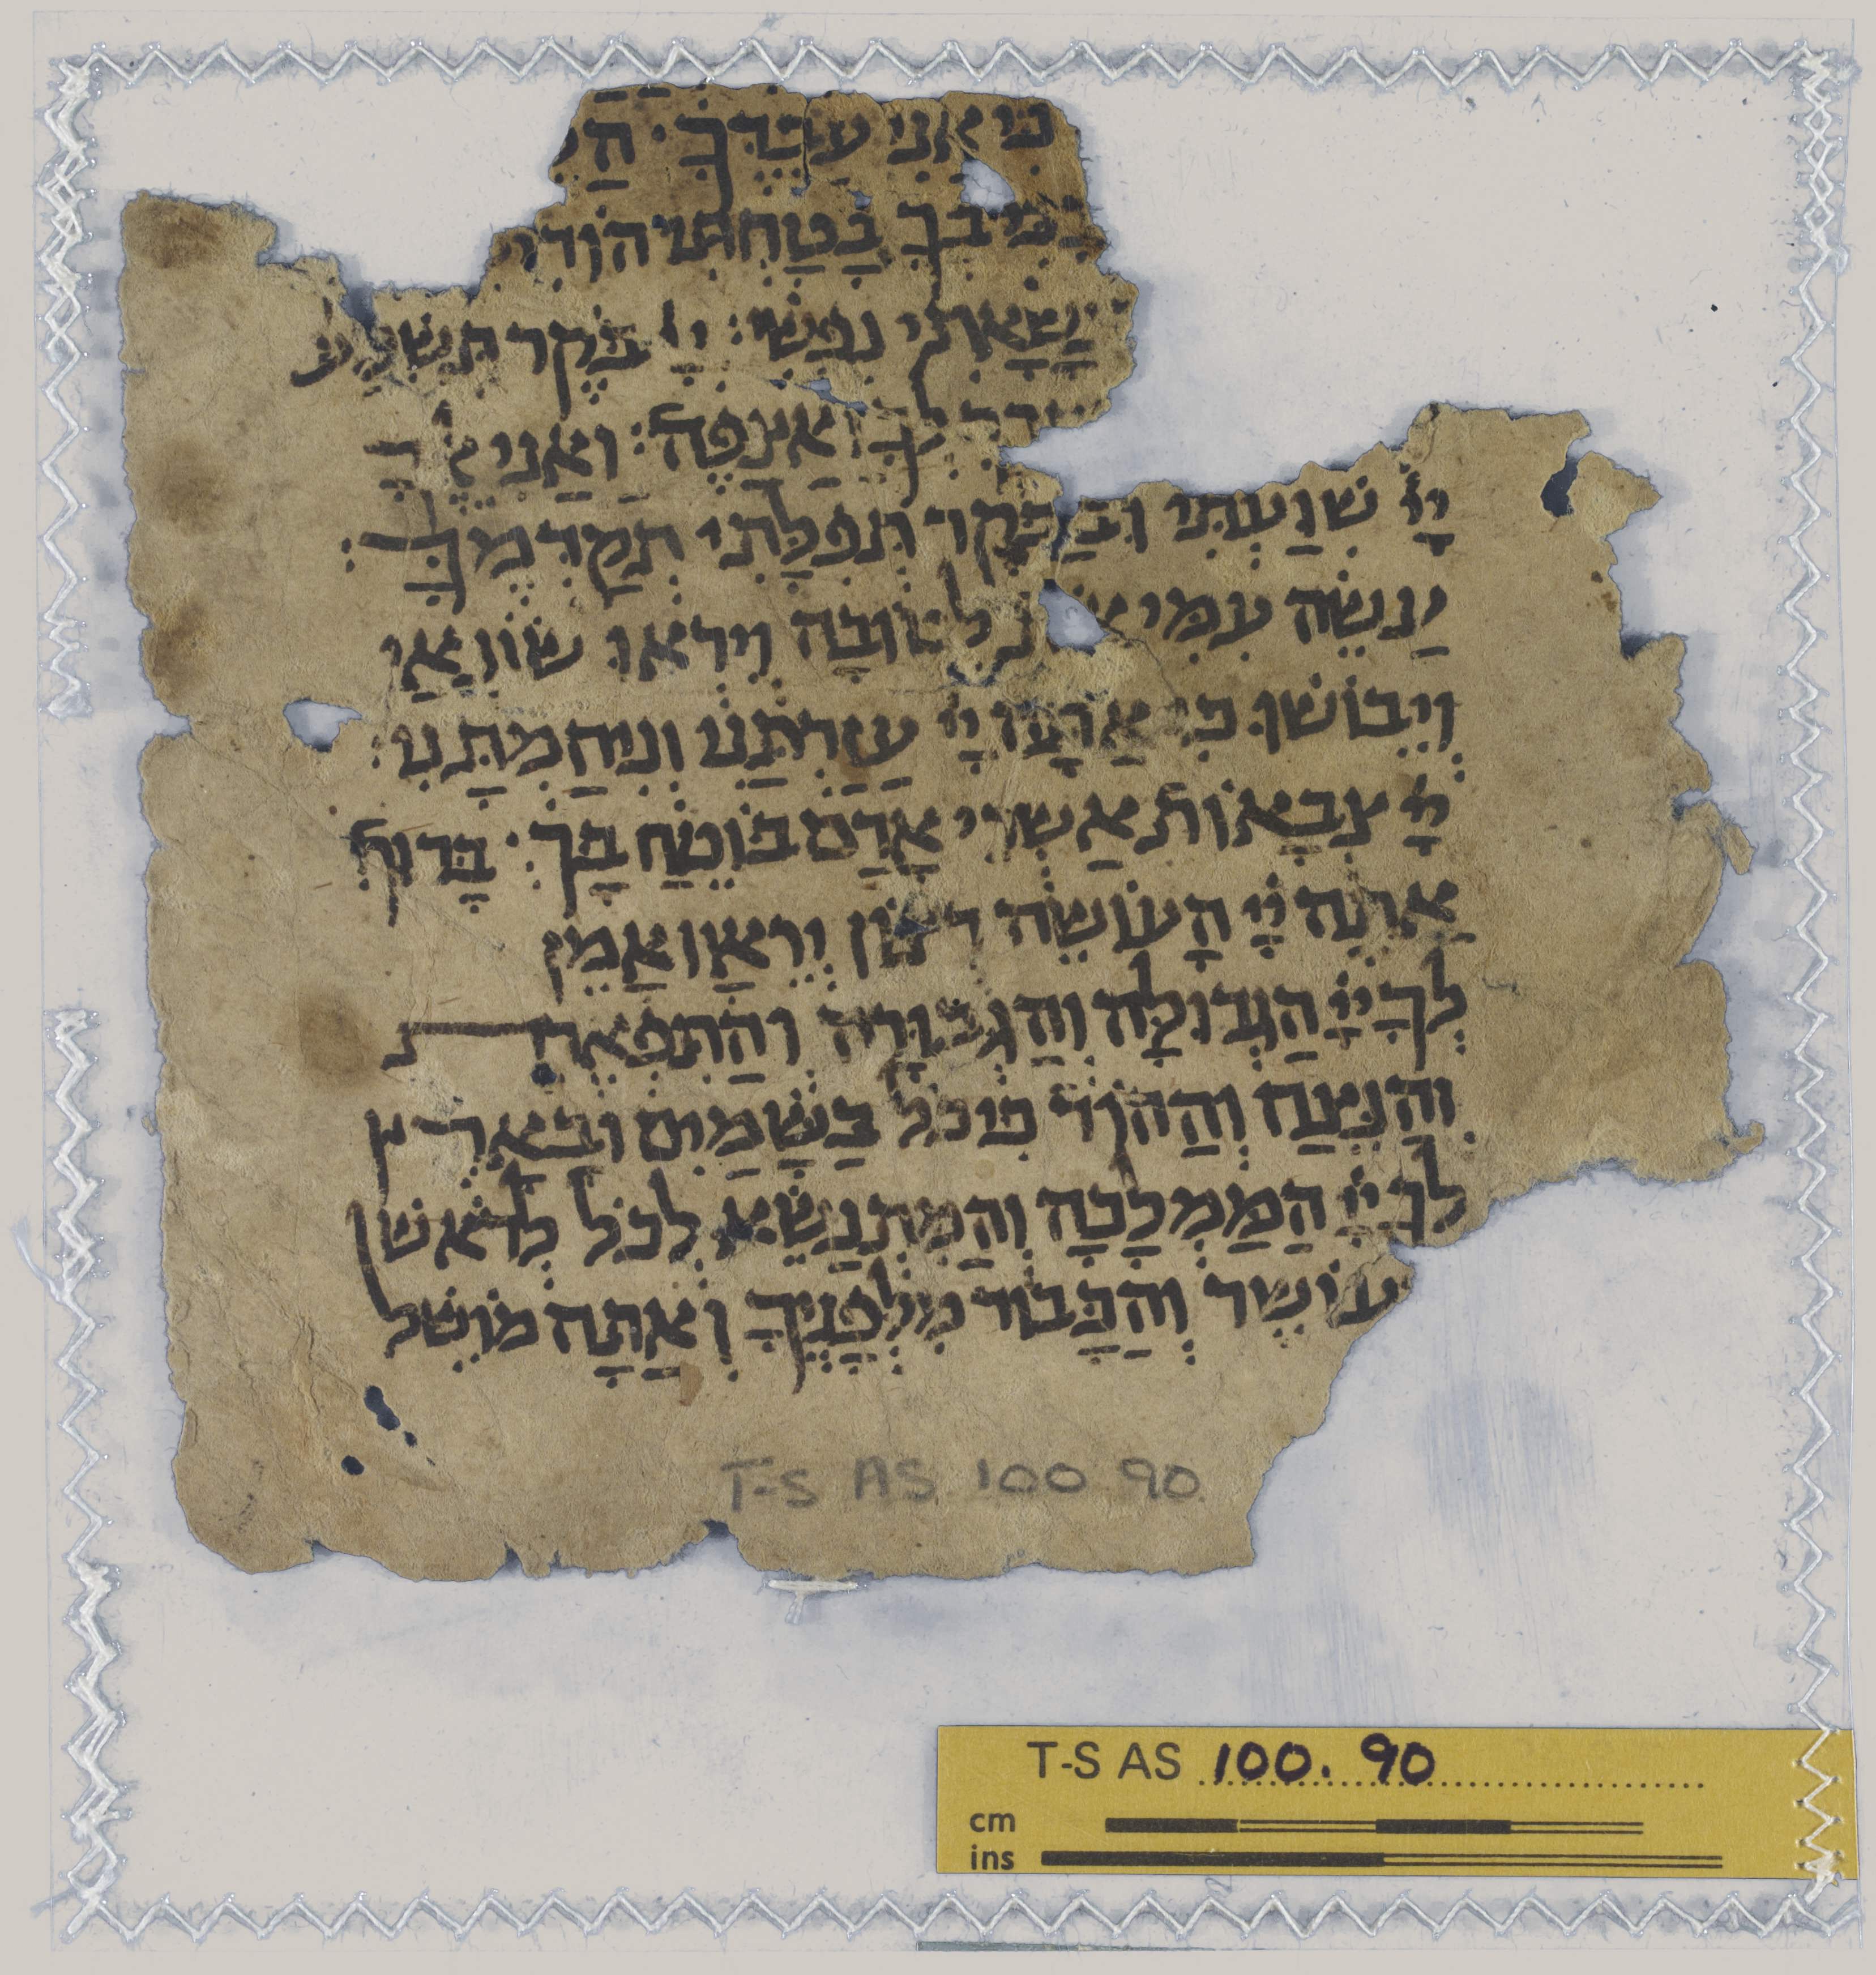 כִּי אֲנִי עַבְדֶּךָ הַ
כִּי בְךָ בָטַחְתִּי הוֹדִי
נָשָׂאתִי נַפְשִׁי: יָיָ בֹּקֶר תִּשְׁמַע
לְךָ וַאֲצַפֶּה: וַאֲנִי אֵלֶיךָ
יָיָ שִׁוַּעְתִּי וּבַבֹּקֶר תְּפִלָּתִי תְקַדְּמֶךָּ:
יַעֲשֶׂה עִמִּי לְטוֹבָה וְיִרְאוּ שׂוֹנְאַי
וְיֵבוֹשׁוּ כִּי אַתָּה יָיָ עֲזַרְתַּנִי וְנִחַמְתָּנִי:
יָיָ צְבָאוֹת אַשְׁרֵי אָדָם בּוֹטֵחַ בָּךְ: בָּרוּךְ
אַתָּה יָיָ הָעוֹשֶׂה רְצוֹן יְרֵאָו אָמֵן
לְךָ יָיָ הַגְּדוּלָּה וְהַגְּבוּרָה וְהַתִּפְאֶרֶת
וְהַנֵּצַח וְהַהוֹד כִּי כֹל בַּשָּׁמַיִם וּבָאָרֶץ
לְךָ יָיָ הַמַּמְלָכָה וְהַמִּתְנַשֵּׂא לְכֹל לְרֹאשׁ
עוֹשֶׁר וְהַכָּבוֹד מִלְּפָנֶיךָ וְאַתָּה מוֹשֵׁל
T-S AS 100.90
T-S AS 100.90
cm
ins